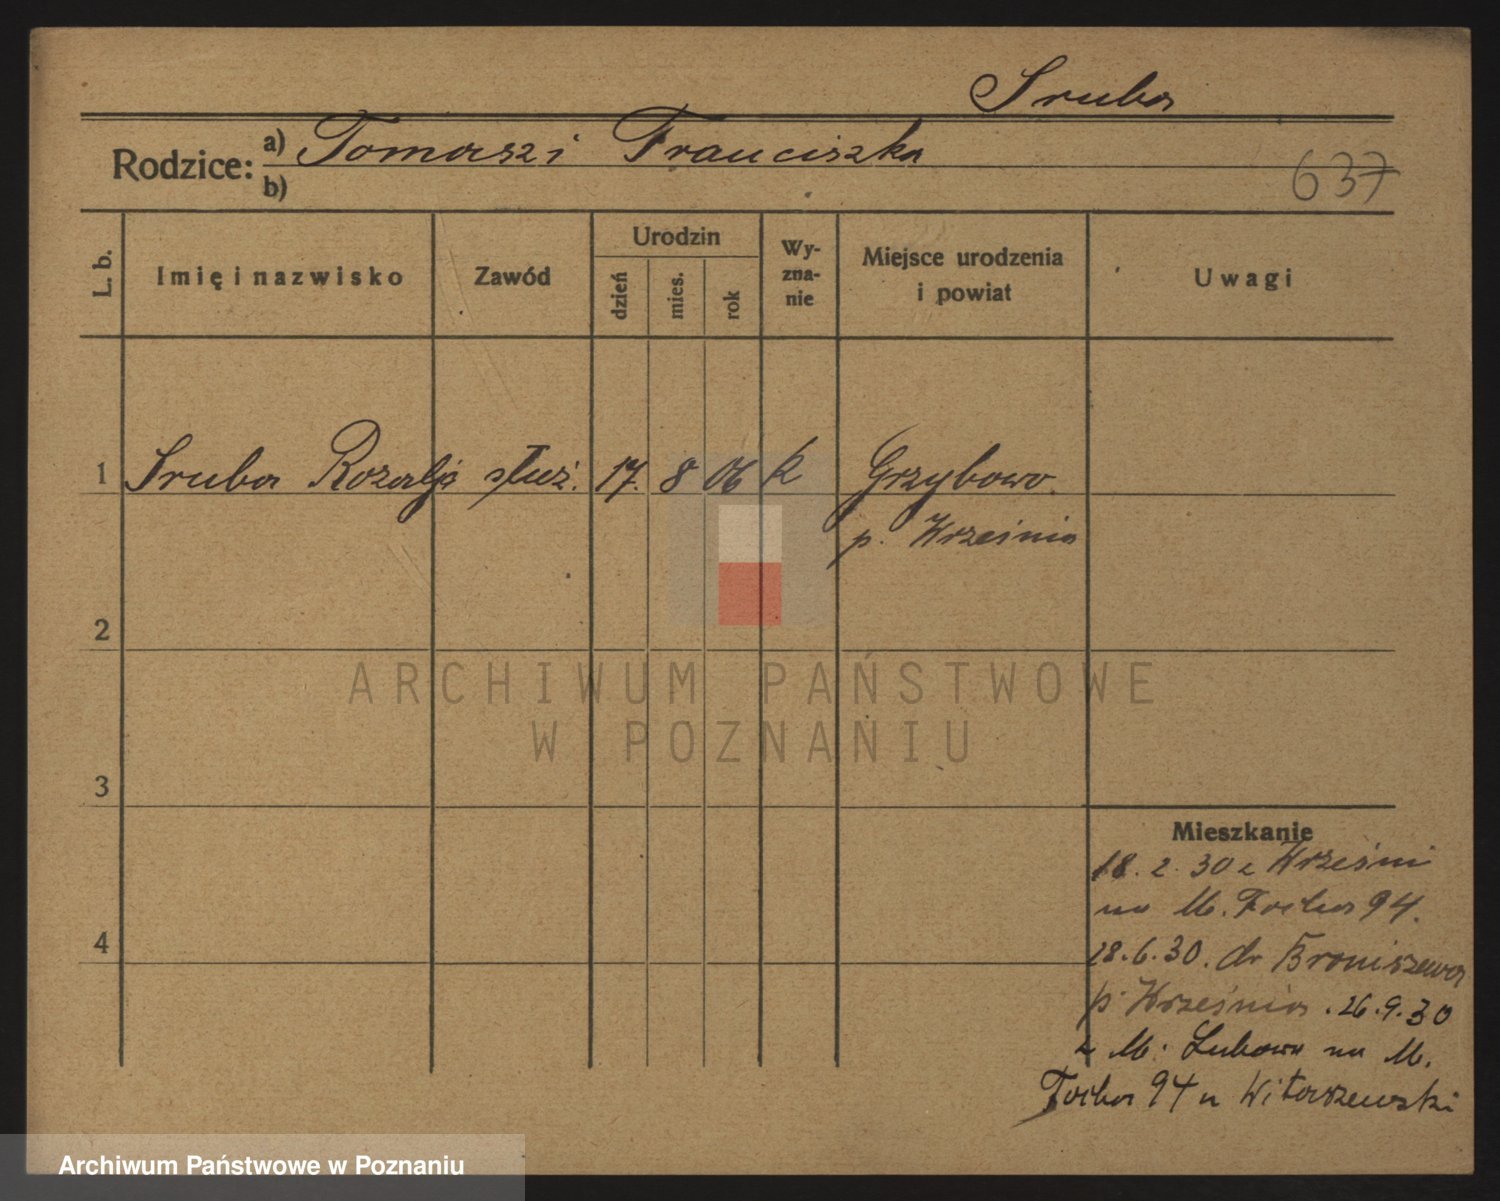 Sruba
Rodzice: a) Tomasz i Franciszka
b)
637
L. b. Imię i nazwisko Zawód Urodzin dzień mies. rok Wy-zna-nie Miejsce urodzenia i powiat Uwagi
1 Sruba Rozalja służ. 17. 8 06 k Grzybowo
p. Września
2
ARCHIWUM PAŃSTWOWE
W POZNANIU
3
Mieszkanie
18. 2. 30 z Wrześni
na M. Focha 94.
4
28.6.30. do Broniszewa
p. Września. 26.9.30
z M. Lubowa na M.
Focha 94 u Witaszewski
Archiwum Państwowe w Poznaniu